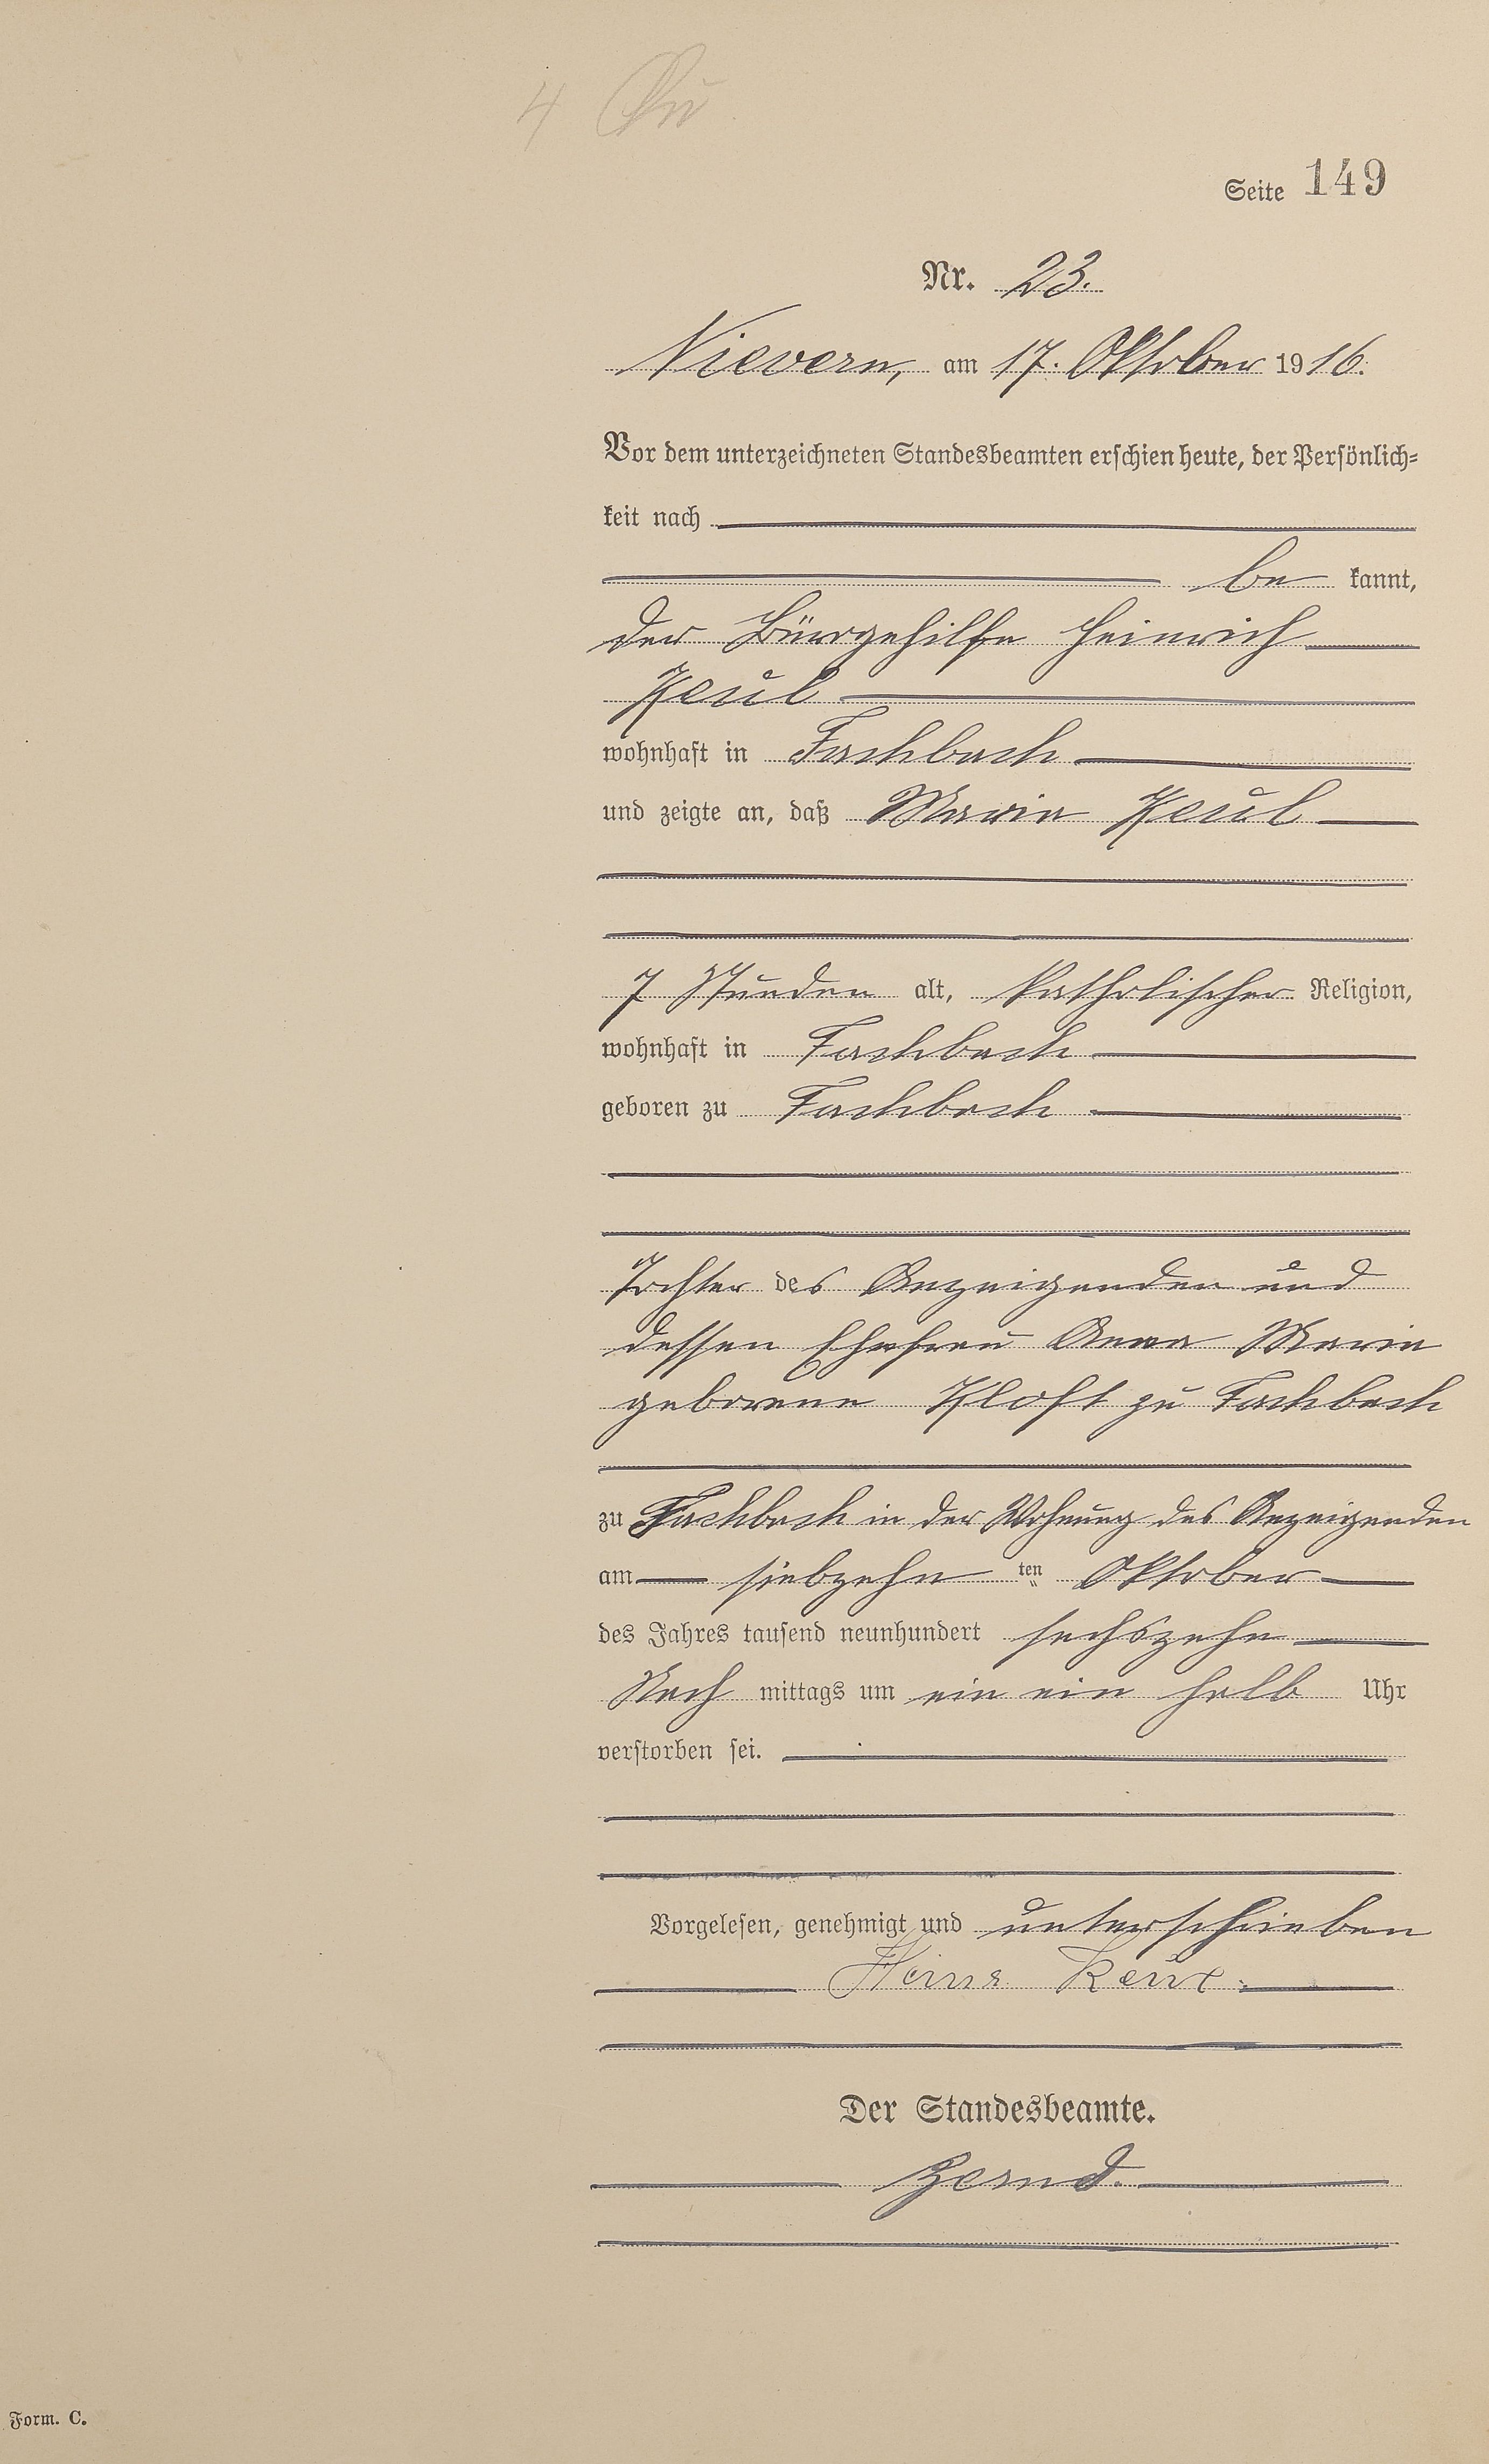 4
Seite 149
Nr. 23.
Nievern, am 17. Oktober 1916.
Vor dem unterzeichneten Standesbeamten erschien heute, der Persönlich-
keit nach
be kannt,
der Bürogehilfe Heinrich
Keul
wohnhaft in Fachbach
und zeigte an, daß Maria Keul
7 Stunden alt, katholischer Religion,
wohnhaft in Fachbach
geboren zu Fachbach
Tochter des Anzeigenden und
dessen Ehefrau Anna Maria
geborene Kloft zu Fachbach
zu Fachbach in der Wohnung des Anzeigenden
am siebzehn ten Oktober
des Jahres tausend neunhundert sechszehn
Nach mittags um ein ein halb Uhr
verstorben sei.
Vorgelesen, genehmigt und unterschrieben
Keul
Der Standesbeamte.
Form. C.